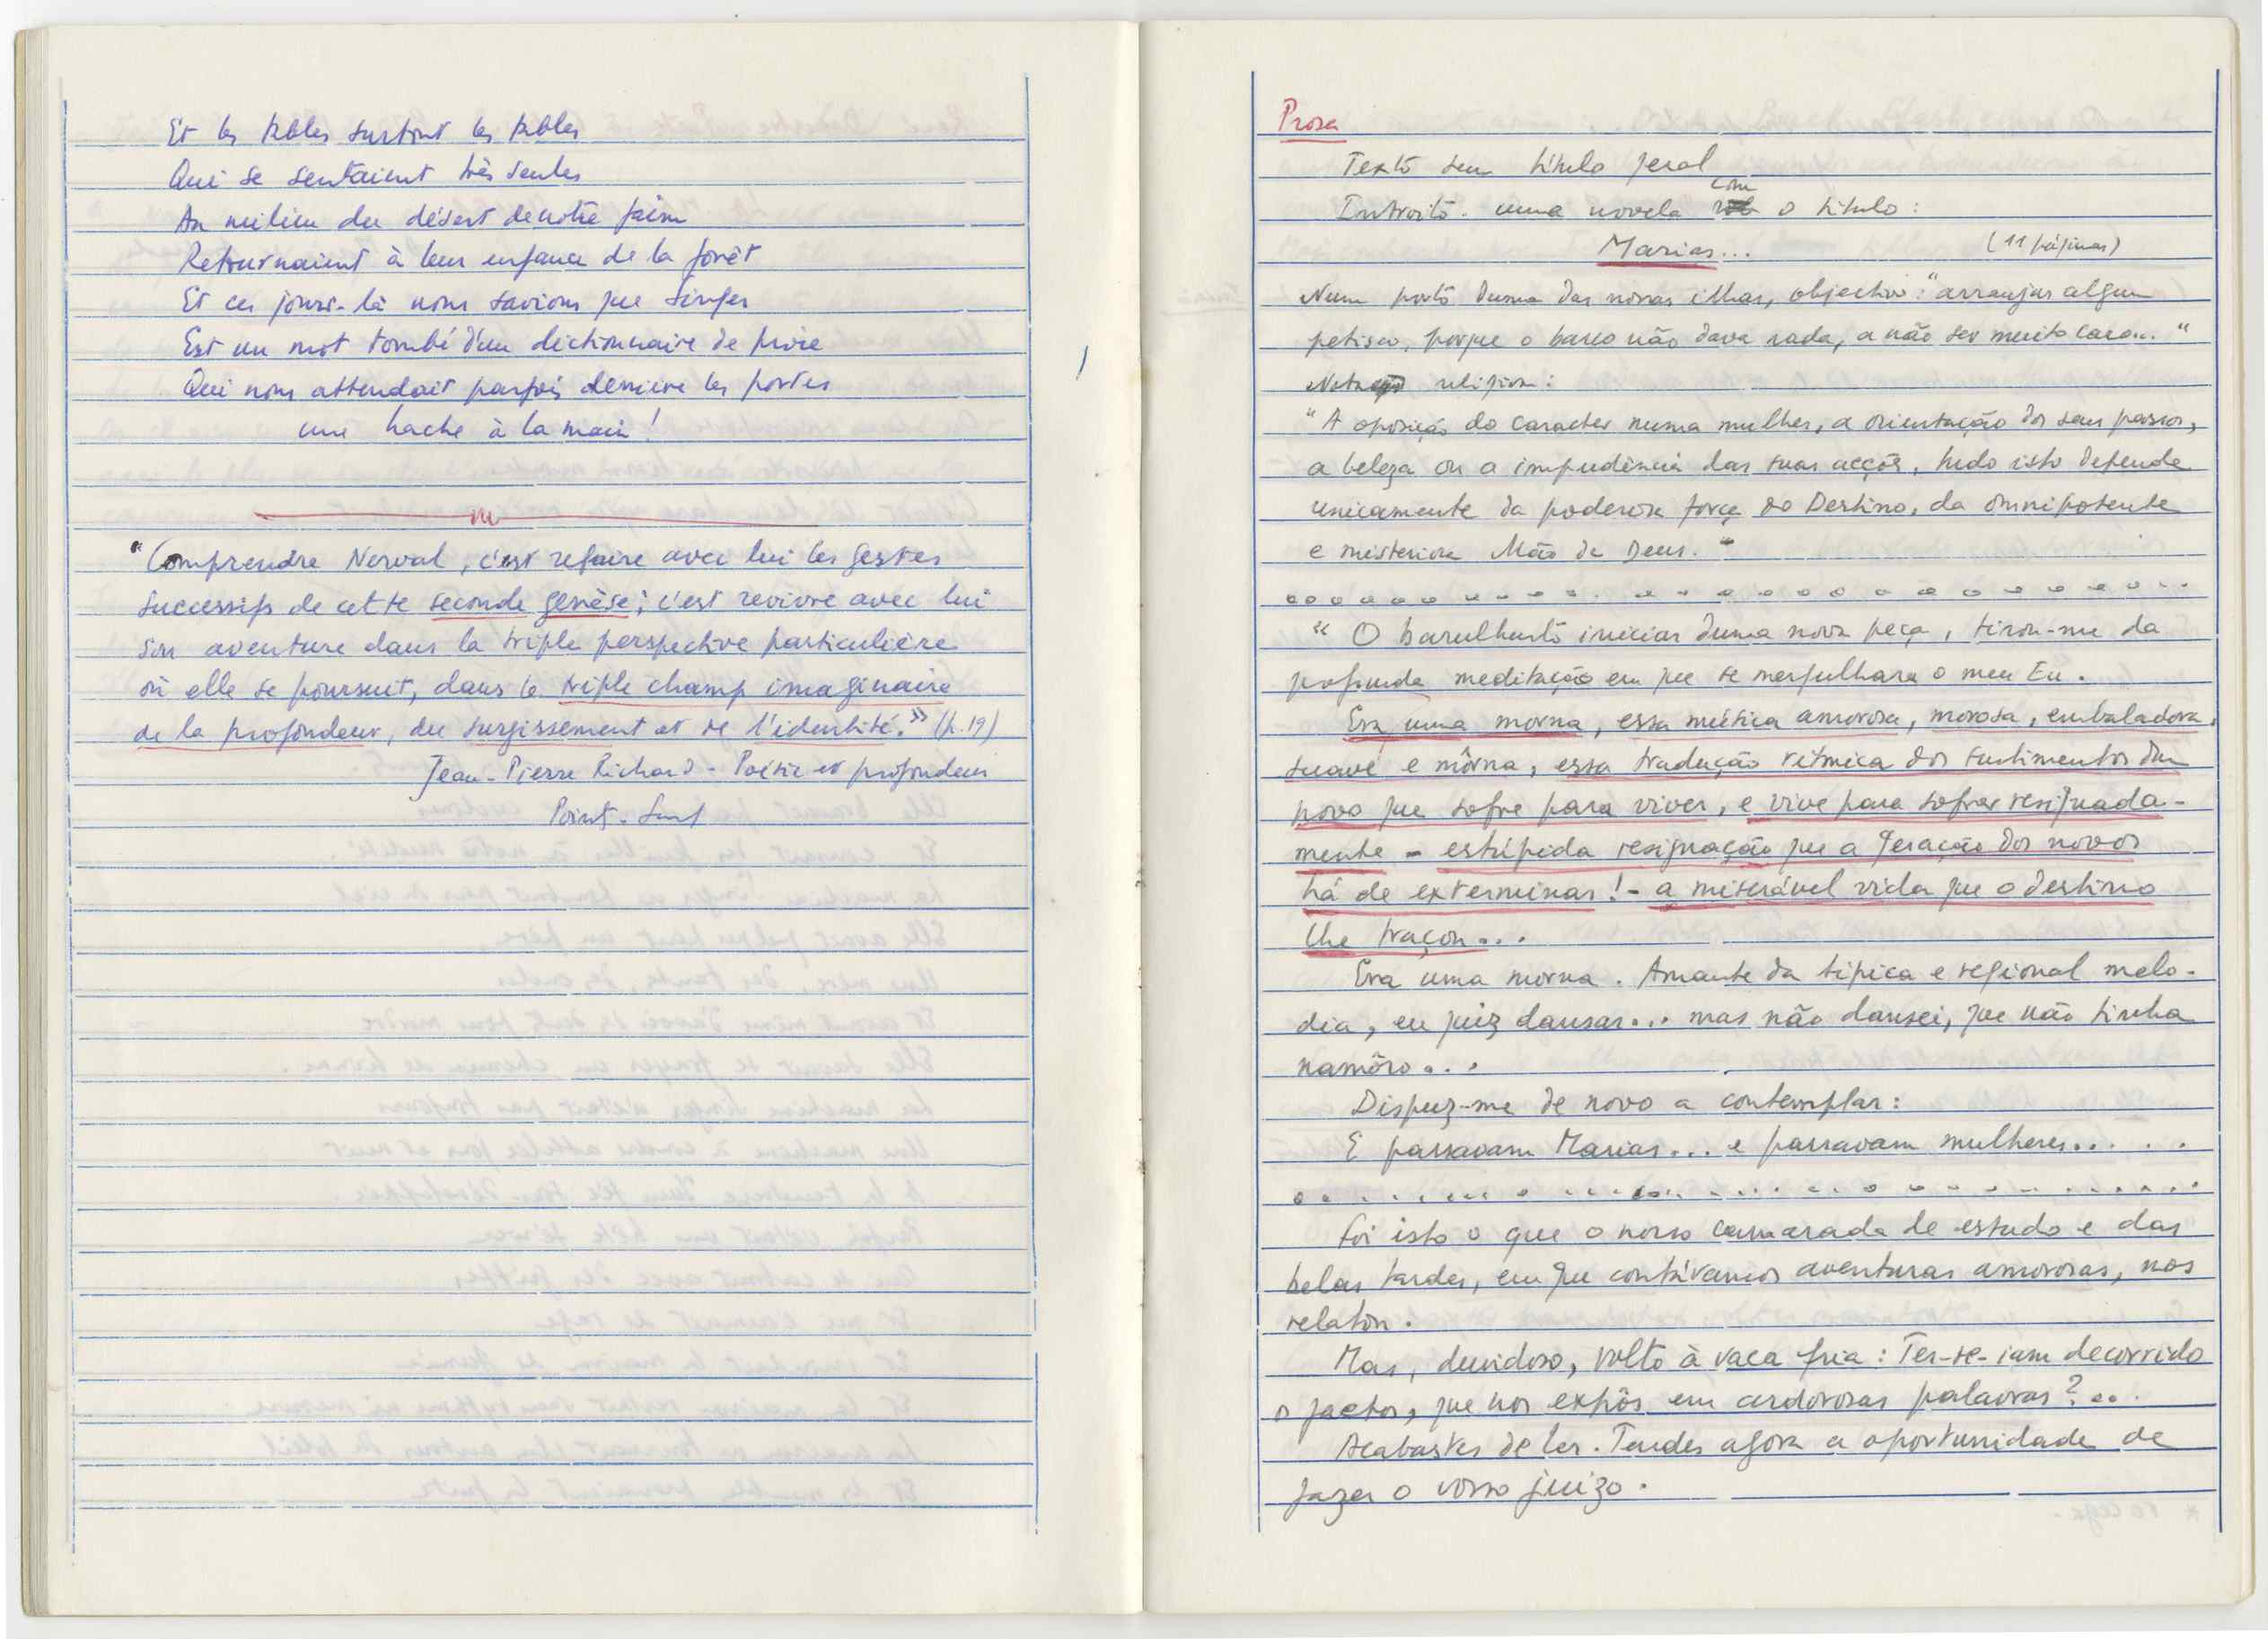 Et les tables surtout les tables
Qui se sentaient très seules
Au milieu du désert de notre faim
Retournaient à leur enfance de la forêt
Et ces jours-là nous savions que Singer
Est un mot tombé d'un dictionnaire de proie
Qui nous attendait parfois derrière les portes
une hache à la main !
"Comprendre Nerval, c'est refaire avec lui les gestes
successifs de cette seconde genèse ; c'est revivre avec lui
son aventure dans la triple perspective particulière
où elle se poursuit, dans le triple champ imaginaire
de la profondeur, du surgissement et de l'identité." (p. 19)
Jean-Pierre Richard - Poésie et profondeur
Points-Seuil
Prosa
Texto sem título geral
Introito. uma novela com o título :
Marias...
(11 páginas)
Num porto duma das nossas ilhas, objectivo : "arranjar algum
petisco, porque o barco não dava nada, a não ser muito caro..."
religiosa :
"A oposição do caracter numa mulher, a orientação dos seus passos,
a beleza ou a impudência das suas acções, tudo isto depende
unicamente da poderosa força do Destino, da omnipotente
e misteriosa Mão de Deus."
" O barulhento iniciar duma nova peça, tirou-me da
profunda meditação em que se mergulhara o meu Eu.
Era uma morna, essa música amorosa, morosa, embaladora,
suave e môrna, essa tradução rítmica dos sentimentos dum
povo que sofre para viver, e vive para sofrer resignada-
mente - estúpida resignação que a geração dos novos
há de exterminar ! - a miserável vida que o destino
lhe traçou...
Era uma morna. Amante da típica e regional melo-
dia, eu quiz dansar... mas não dansei, que não tinha
namôro...
Dispuz-me de novo a contemplar :
E passavam Marias... e passavam mulheres.. . . .
Foi isto o que o nosso camarada de estudo e das
belas tardes, em que contávamos aventuras amorosas, nos
relatou.
Mas, duvidoso, volto à vaca fria : Ter-se-iam decorrido
os factos, que nos expôs em ardorosas palavras ?...
Acabastes de ler. Tendes agora a oportunidade de
fazer o vosso juizo.